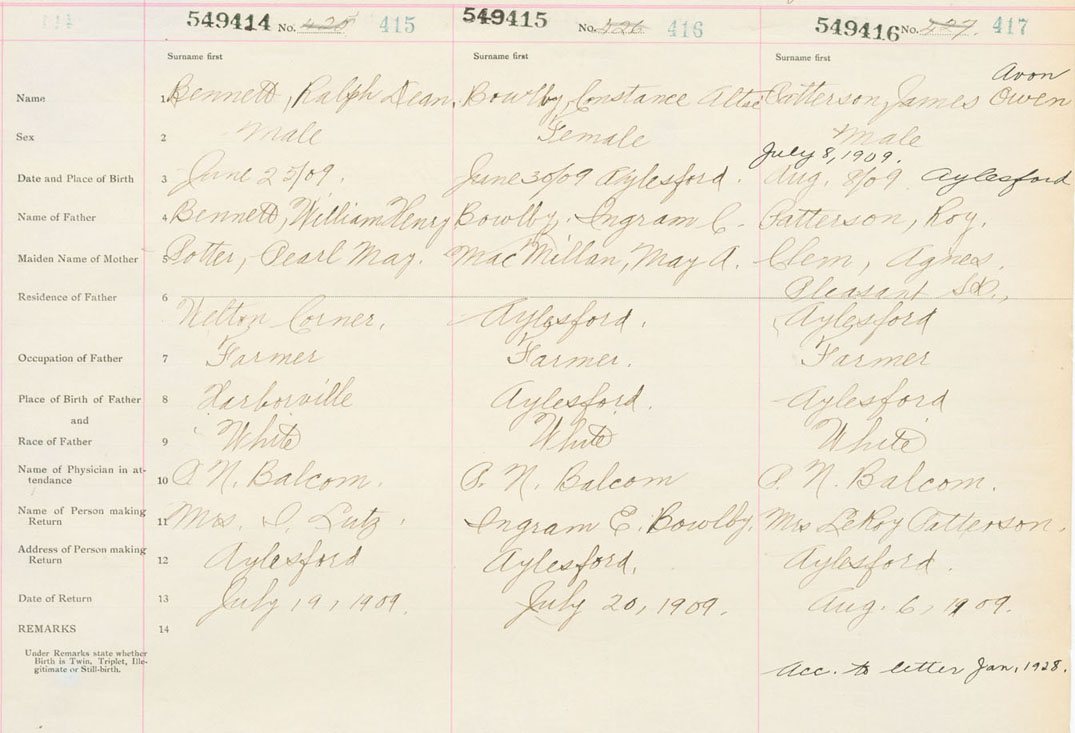 549414 No. 415 549415 No. 416 549416 No. 417
Surname first Surname first Surname first
Avon
Name 1 Bennett, Ralph Dean. Bowlby, Constance Patterson, James Owen
Sex 2 Male Female Male
July 8, 1909.
Date and Place of Birth 3 June 23/09. June 30/09 Aylesford. Aug. 8/09 Aylesford
Name of Father 4 Bennett, William Henry Bowlby, Ingram Patterson, Roy.
Maiden Name of Mother 5 Potter, Pearl May. MacMillan, May A. Clem, Agnes.
Pleasant St.,
Residence of Father 6 Welton Corner. Aylesford. Aylesford
Occupation of Father 7 Farmer Farmer. Farmer
Place of Birth of Father 8 Harborville Aylesford. Aylesford
and
Race of Father 9 White White White
Name of Physician in at-
tendance 10 P. N. Balcom. P. N. Balcom P. N. Balcom.
Name of Person making
Return 11 Mrs. Lutz. Ingram E. Bowlby. Mrs LeRoy Patterson.
Address of Person making
Return 12 Aylesford Aylesford. Aylesford.
Date of Return 13 July 19, 1909. July 20, 1909. Aug. 6, 1909.
REMARKS 14
Under Remarks state whether
Birth is Twin, Triplet, Ille-
gitimate or Still-birth.
Acc. to letter Jan. 1928.